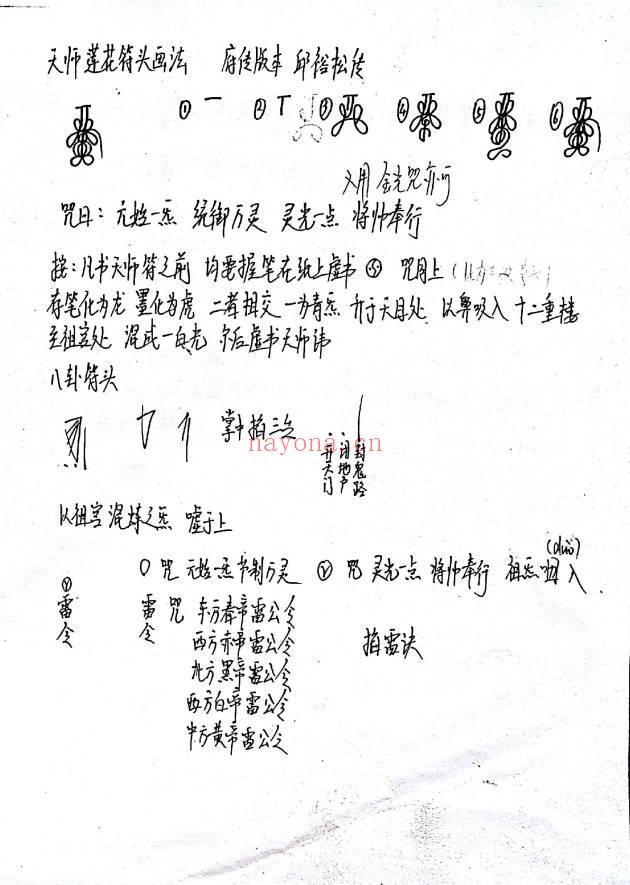 天师莲花符头画法 府传版本 邱裕松传
① ② ③ ④ ⑤ ⑥
又用金光咒亦可
咒曰：元始一炁 统御万灵 灵光一点 将帅奉行
按：凡书天师符之前 均要握笔在纸上虚书 ⑤ 咒同上
存笔化为龙 墨化为虎 二者相交 一为青炁 于天目处 以鼻吸入 十二重楼
至祖宫处 混成一白光 尔后虚书天师讳
八卦符头
掌中掐三之
一开天门
一闭地户
一封鬼路
以祖宫混炼之炁 嘘于上
咒 元始一炁 节制万灵 咒 灵光一点 将帅奉行 祖炁 入
雷令
雷令 咒 东方春帝雷公令
西方赤帝雷公令
北方黑帝雷公令
西方白帝雷公令
中方黄帝雷公令
掐雷诀
nayona.cn